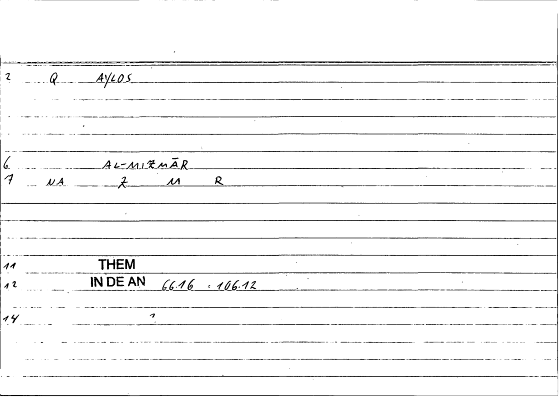 2 Q AYLOS
6 AL-MIZMĀR
7 NA Z M R
11 THEM
12 IN DE AN 66.16 : 106.12
14